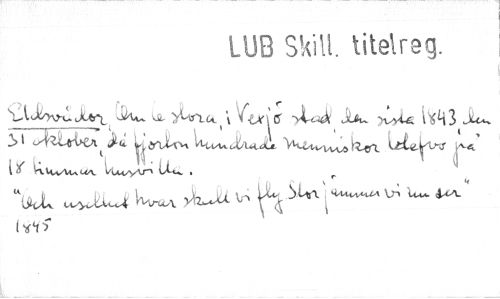 LUB Skill. titelreg.
Eldsvådor, Om de stora, i Vexjö stad den sista 1843 den
31 oktober, då fjorton hundrade menniskor blefvo på
18 timmar husvilla.
"Och uselhet hvar skull vi fly Stor jämmer vi nu ser"
1845